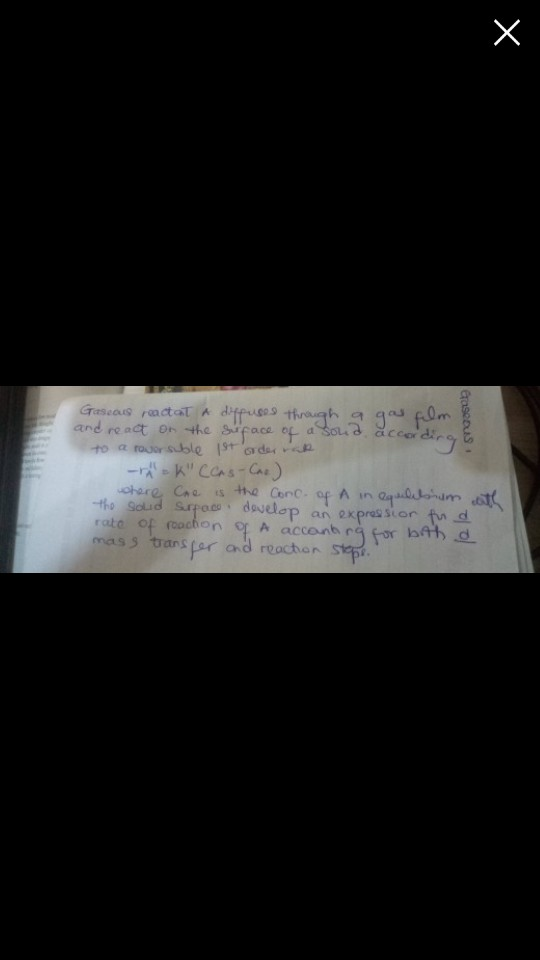 Gaseous reactat A diffuses through a gas film
and react on the surface of a solid. according
to a reversible 1st order rate
-rA" = K" (CAS - CAe)
where CAe is the conc. of A in equilibrium with
the solid surface. develop an expression for d
rate of reaction of A accounting for both d
mass transfer and reaction steps.
Gaseous.